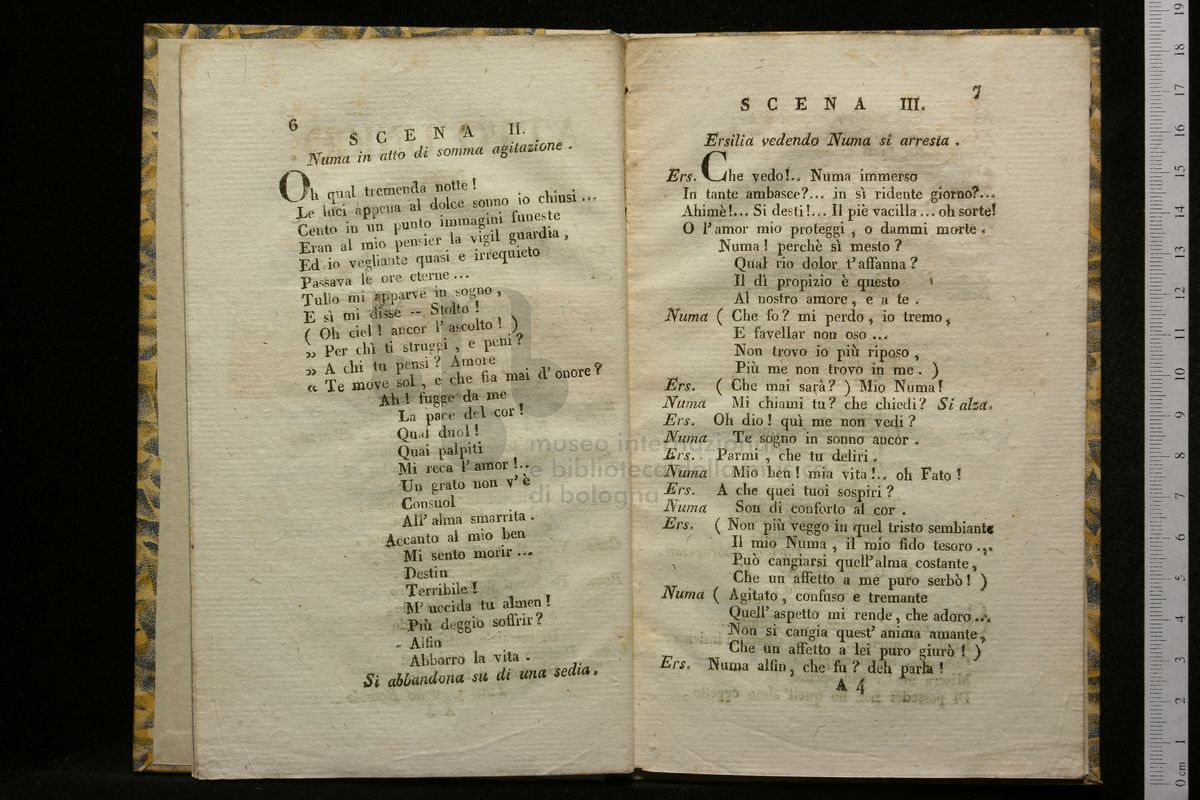 6
SCENA II.
Numa in atto di somma agitazione.
Oh qual tremenda notte!
Le luci appena al dolce sonno io chiusi...
Cento in un punto immagini funeste
Eran al mio pensier la vigil guardia,
Ed io vegliante quasi e irrequieto
Passava le ore eterne...
Tullo mi apparve in sogno,
E sì mi disse -- Stolto!
( Oh ciel! ancor l'ascolto! )
„ Per chì ti struggi, e peni?
„ A chi tu pensi? Amore
“ Te move sol, e che fia mai d'onore?
Ah! fugge da me
La pace del cor!
Quai duol!
Quai palpiti
Mi reca l'amor!..
Un grato non v'è
Consuol
All'alma smarrita.
Accanto al mio ben
Mi sento morir...
Destin
Terribile!
M'uccida tu almen!
Più deggio soffrir?
Alfin
Abborro la vita.
Si abbandona su di una sedia.
7
SCENA III.
Ersilia vedendo Numa si arresta.
Ers. Che vedo!.. Numa immerso
In tante ambasce?... in sì ridente giorno?...
Ahimè!... Si desti!... Il piè vacilla... oh sorte!
O l'amor mio proteggi, o dammi morte.
Numa! perchè sì mesto?
Qual rio dolor t'affanna?
Il dì propizio è questo
Al nostro amore, e a te.
Numa ( Che fo? mi perdo, io tremo,
E favellar non oso...
Non trovo io più riposo,
Più me non trovo in me. )
Ers. ( Che mai sarà? ) Mio Numa!
Numa Mi chiami tu? che chiedi? Si alza.
Ers. Oh dio! quì me non vedi?
Numa Te sogno in sonno ancor.
Ers. Parmi, che tu deliri.
Numa Mio ben! mia vita!.. oh Fato!
Ers. A che quei tuoi sospiri?
Numa Son di conforto al cor.
Ers. ( Non più veggo in quel tristo sembiante
Il mio Numa, il mio fido tesoro...
Può cangiarsi quell'alma costante,
Che un affetto a me puro serbò! )
Numa ( Agitato, confuso e tremante
Quell'aspetto mi rende, che adoro...
Non si cangia quest'anima amante,
Che un affetto a lei puro giurò! )
Ers. Numa alfin, che fu? deh parla!
A 4
museo internazionale
e biblioteca della musica
di bologna